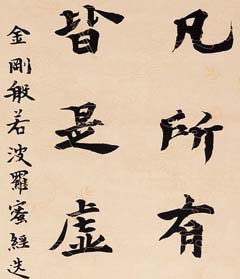 凡所有
皆是虛
金剛般若波羅蜜經